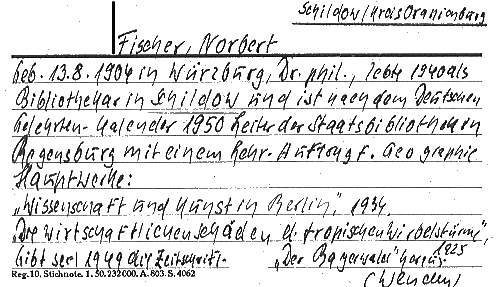 Schildow/Kreis Oranienburg
Fischer, Norbert
geb. 13.8.1904 in Würzburg, Dr. phil., lebte 1940 als
Bibliothekar in Schildow und ist nach dem Deutschen
Gelehrten-Kalender 1950 Leiter der Staatsbibliothek in
Regensburg mit einem Lehr-Auftrag f. Geographie
Hauptwerke:
„Wissenschaft und Kunst in Berlin", 1934
„Die wirtschaftlichen Schäden d. tropischen Wirbelstürme",
1925
Gibt seit 1949 die Zeitschrift „Der Bayerwald" heraus.
Reg. 10. Stichnote. 1. 50. 232000. A. 803. S. 4062